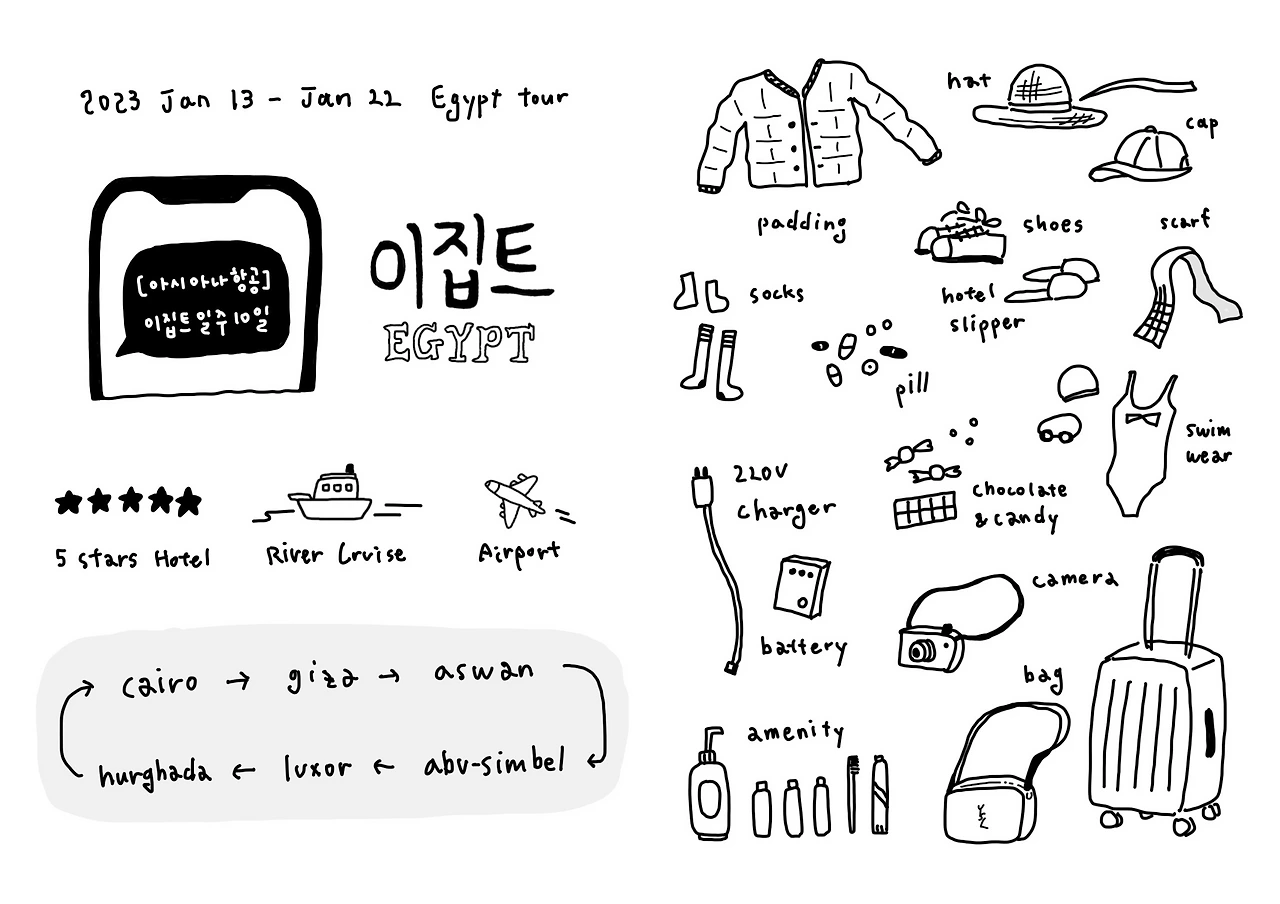 2023 Jan 13 - Jan 22 Egypt tour
[아시아나항공]
이집트 일주 10일
이집트
EGYPT
5 stars Hotel
River Cruise
Airport
cairo → giza → aswan
hurghada ← luxor ← abu-simbel
padding
hat
cap
shoes
scarf
socks
hotel
slipper
pill
swim
wear
220V
charger
chocolate
& candy
battery
camera
bag
amenity
YSL